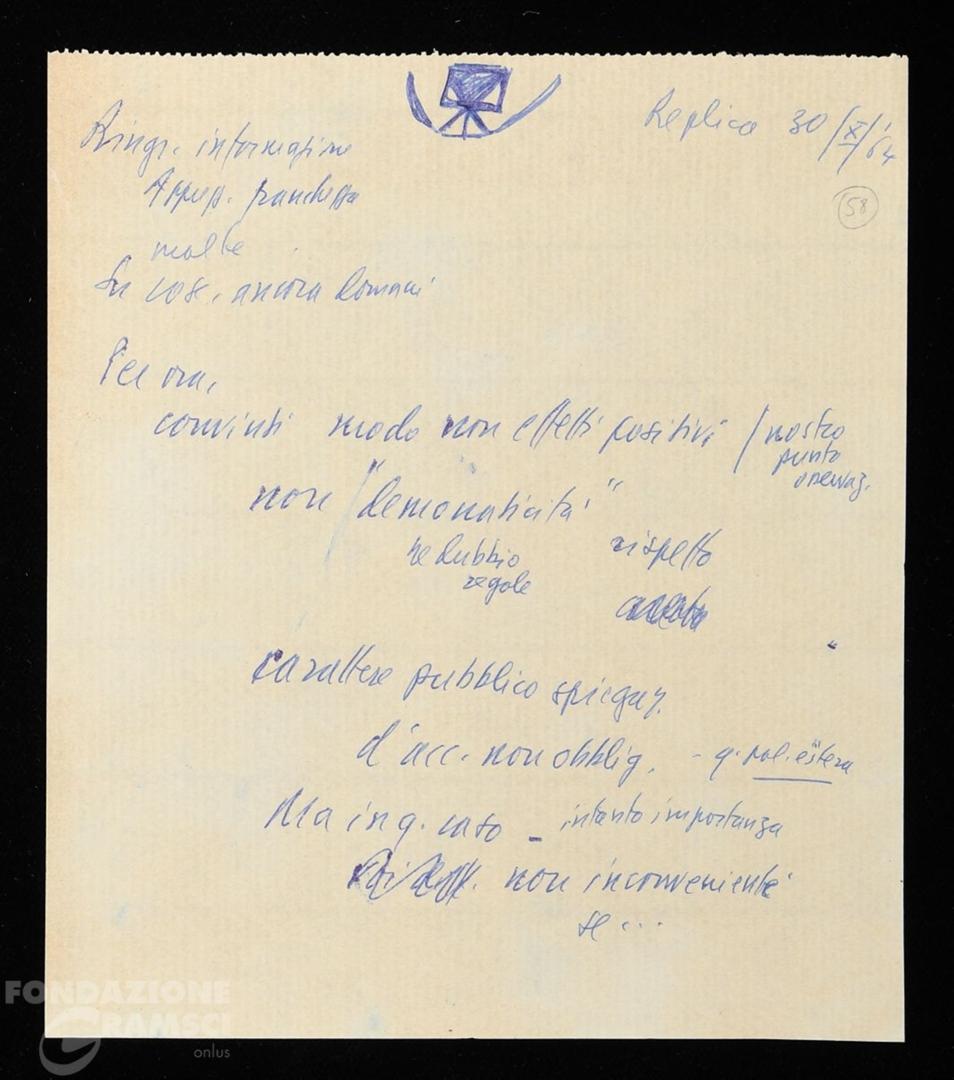 Replica 30/X/64
58
Ringr. informazione
Appr. franchezza
molte
Su cose, ancora domani
Per ora,
convinti modo non effetti positivi / nostro
punto
osservaz.
non "democraticità"
né dubbio rispetto
regole
carattere pubblico spiegaz.
d'acc. non obblig. - q. pol. estera
Ma in q. caso - intanto importanza
non inconveniente
se ...
FONDAZIONE
GRAMSCI
onlus